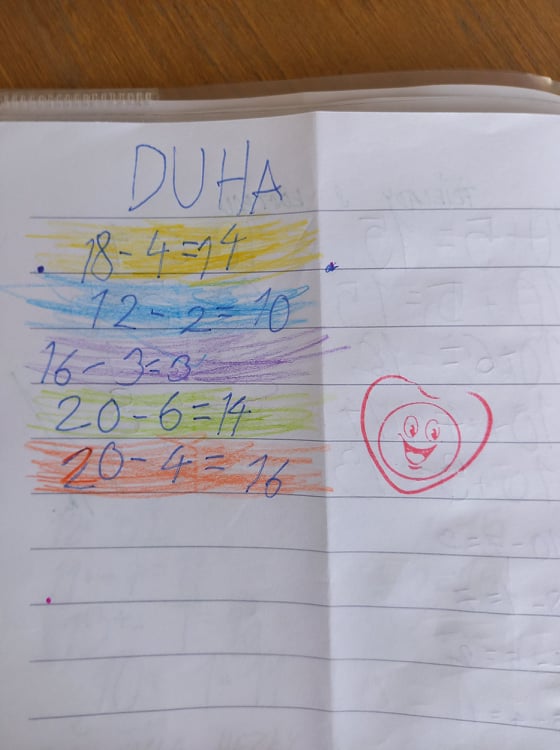 DUHA
18-4=14
12-2=10
16-3=3
20-6=14
20-4=16